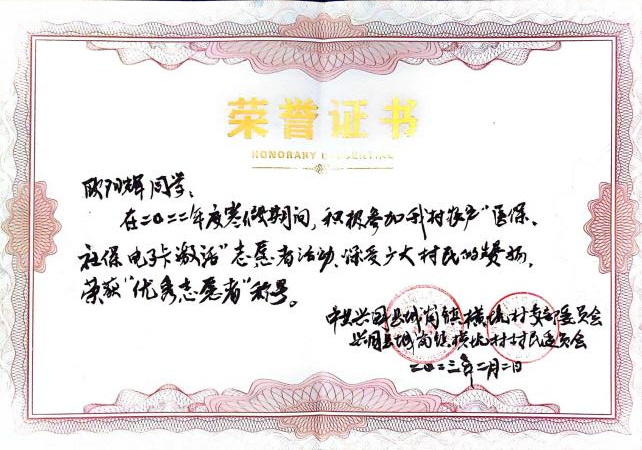 荣誉证书
HONORARY CREDENTIAL
欧阳辉同学:
在二〇二二年度寒假期间,积极参加我村农户“医保、
社保电子卡激活”志愿者活动、深受广大村民的赞扬,
荣获“优秀志愿者”称号。
中共兴国县城岗镇横坑村支部委员会
兴国县城岗镇横坑村村民委员会
二〇二三年二月二日